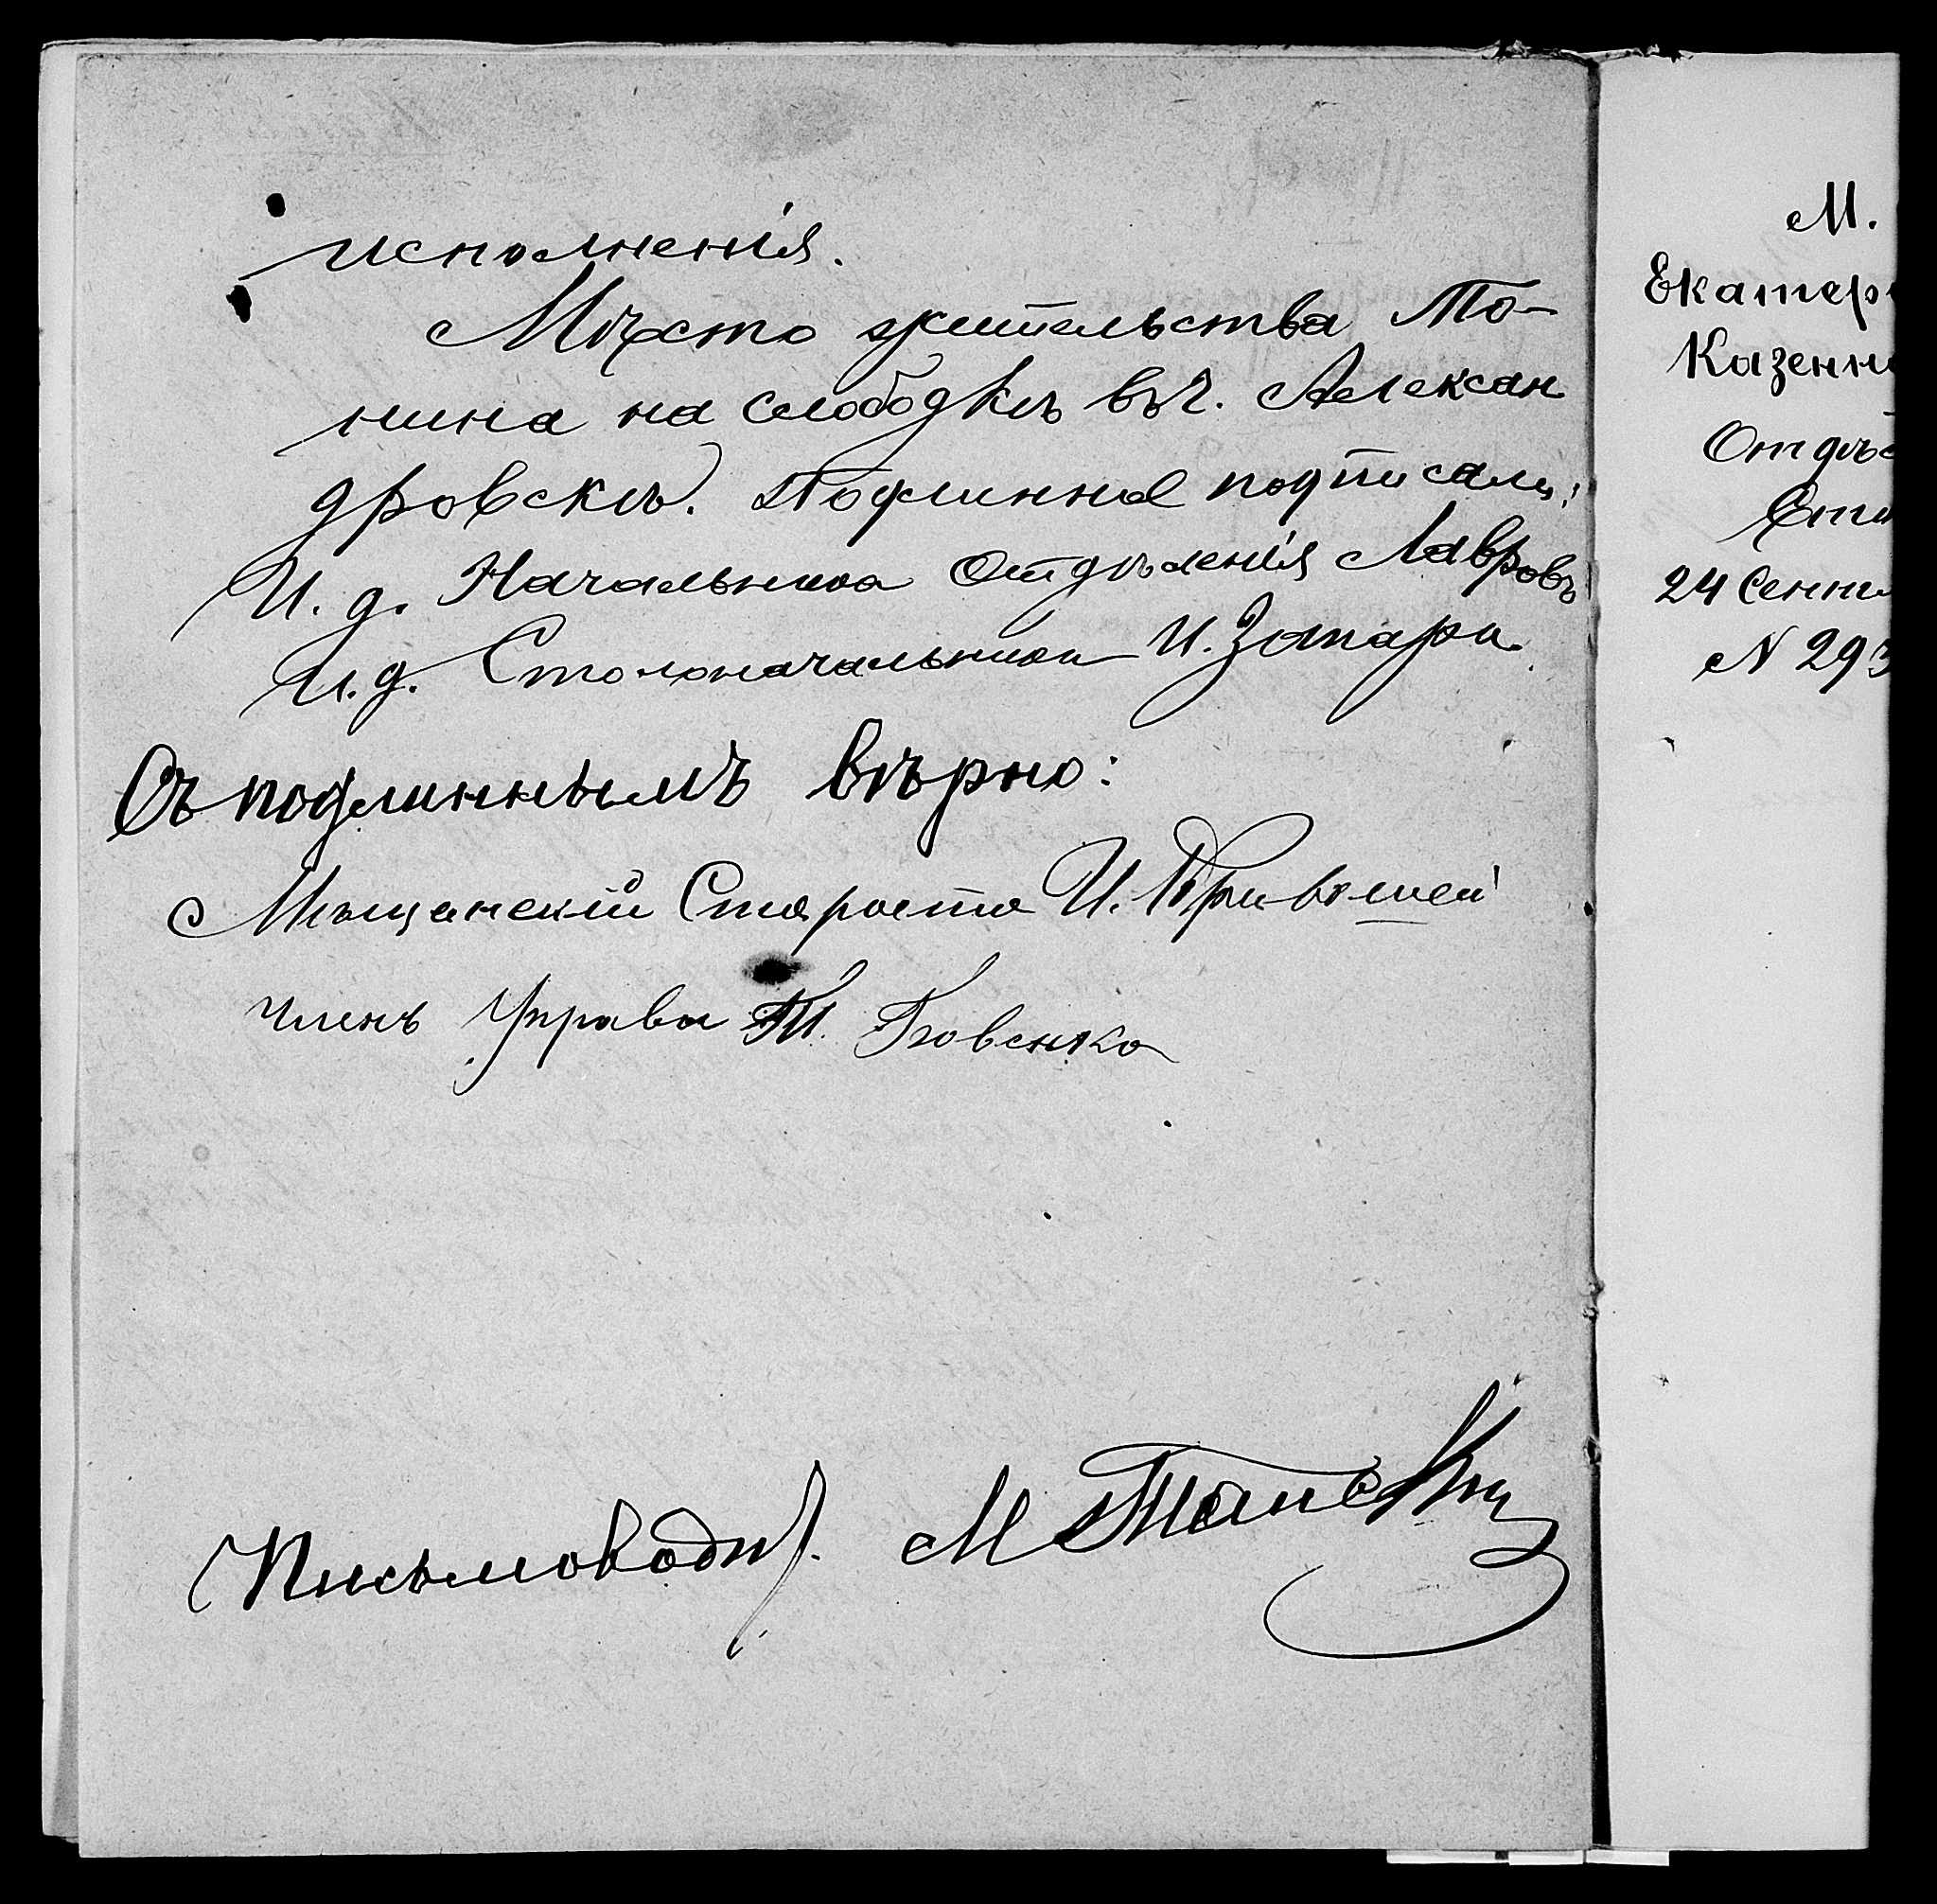 исполненія.
Мѣсто жительства То-
нина на слободкѣ въ г. Алексан
дровскѣ. Подлинное подписали:
И. д. Начальника Отдѣленія Лавровъ
И. д. Столоначальника И.
Съ подлиннымъ вѣрно:
Мѣщанскій Староста И.
Членъ Управы
Письмовод.
М.
Екатер
Казенн
Отдѣ
Сто
24 Сентя
N 293